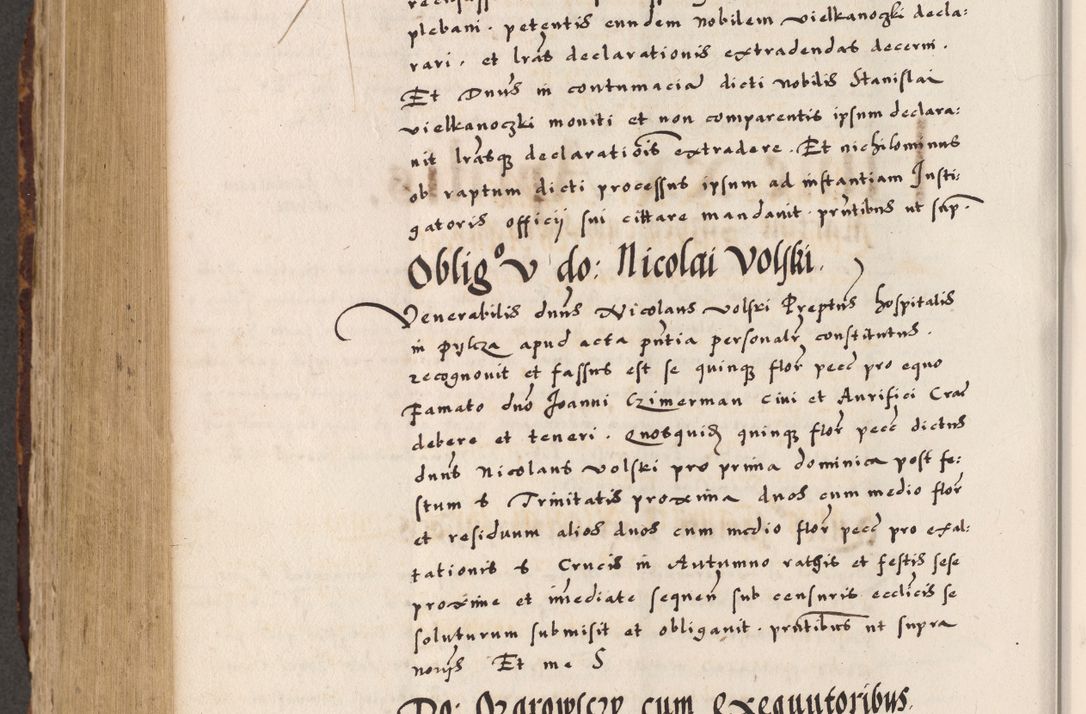 plebani . petentis eundem nobilem vielkanoczki decla:
rari . et lras declarationis extradendas decerni .
Et Dnus in contumaciã dicti nobilis Stanislai
vielkanoczki moniti et non comparentis ipsum declara:
uit lrasq declarationis extradere . Et nichilominus
ob raptum dicti processus ipsum ad instantiam Insti:
gatoris officij sui cittare mandauit . pntibus ut sup .
Obligo v do: Nicolai Volski .
Venerabilis dnus Nicolaus volski Preptus hospitalis
in Pylza apud acta pntia personalr constitutus .
recognouit et fassus est se quinq flor pecc pro equo
Famato dno Joanni Czimerman ciui et Aurifici Crac
debere et teneri . Quosquid quinq flor pecc dictus
dnus Nicolaus volski pro prima dominica post fe:
stum s Trinitatis proxima duos cum medio flor
et residuum alios duos cum medio flor pecc pro exal:
tationis s Crucis in Autumno rathis et festis sese
proxime et imediate sequen sub censuris ecclicis se
soluturum submisit et obligauit . pntibus ut supra
Et me S
Do: Ozarowsczy cum exequutoribus .